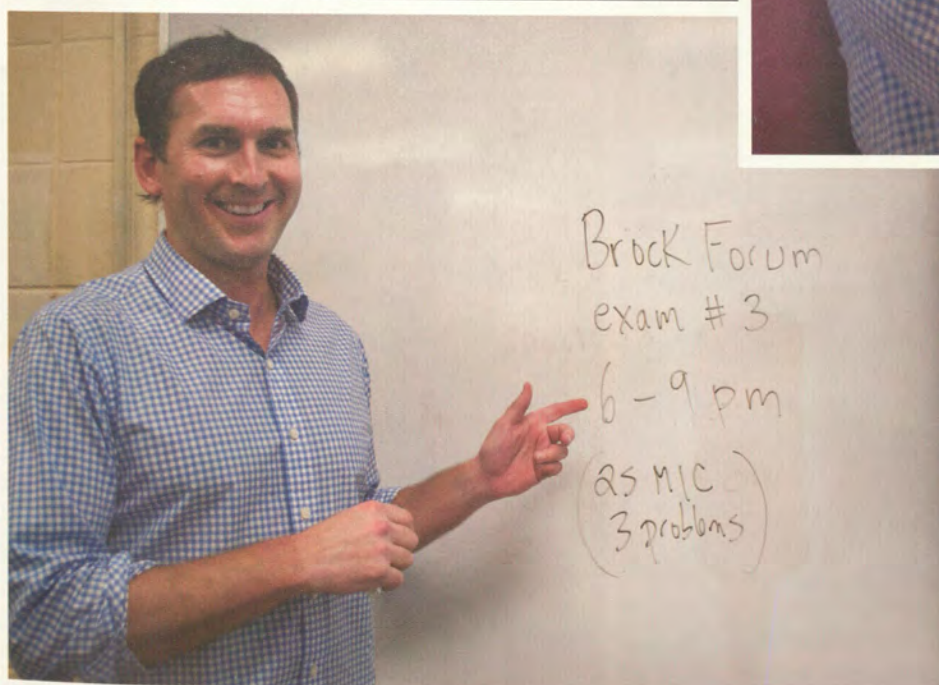 Brock Forum
exam # 3
6 - 9 pm
(25 M/C
3 problems)